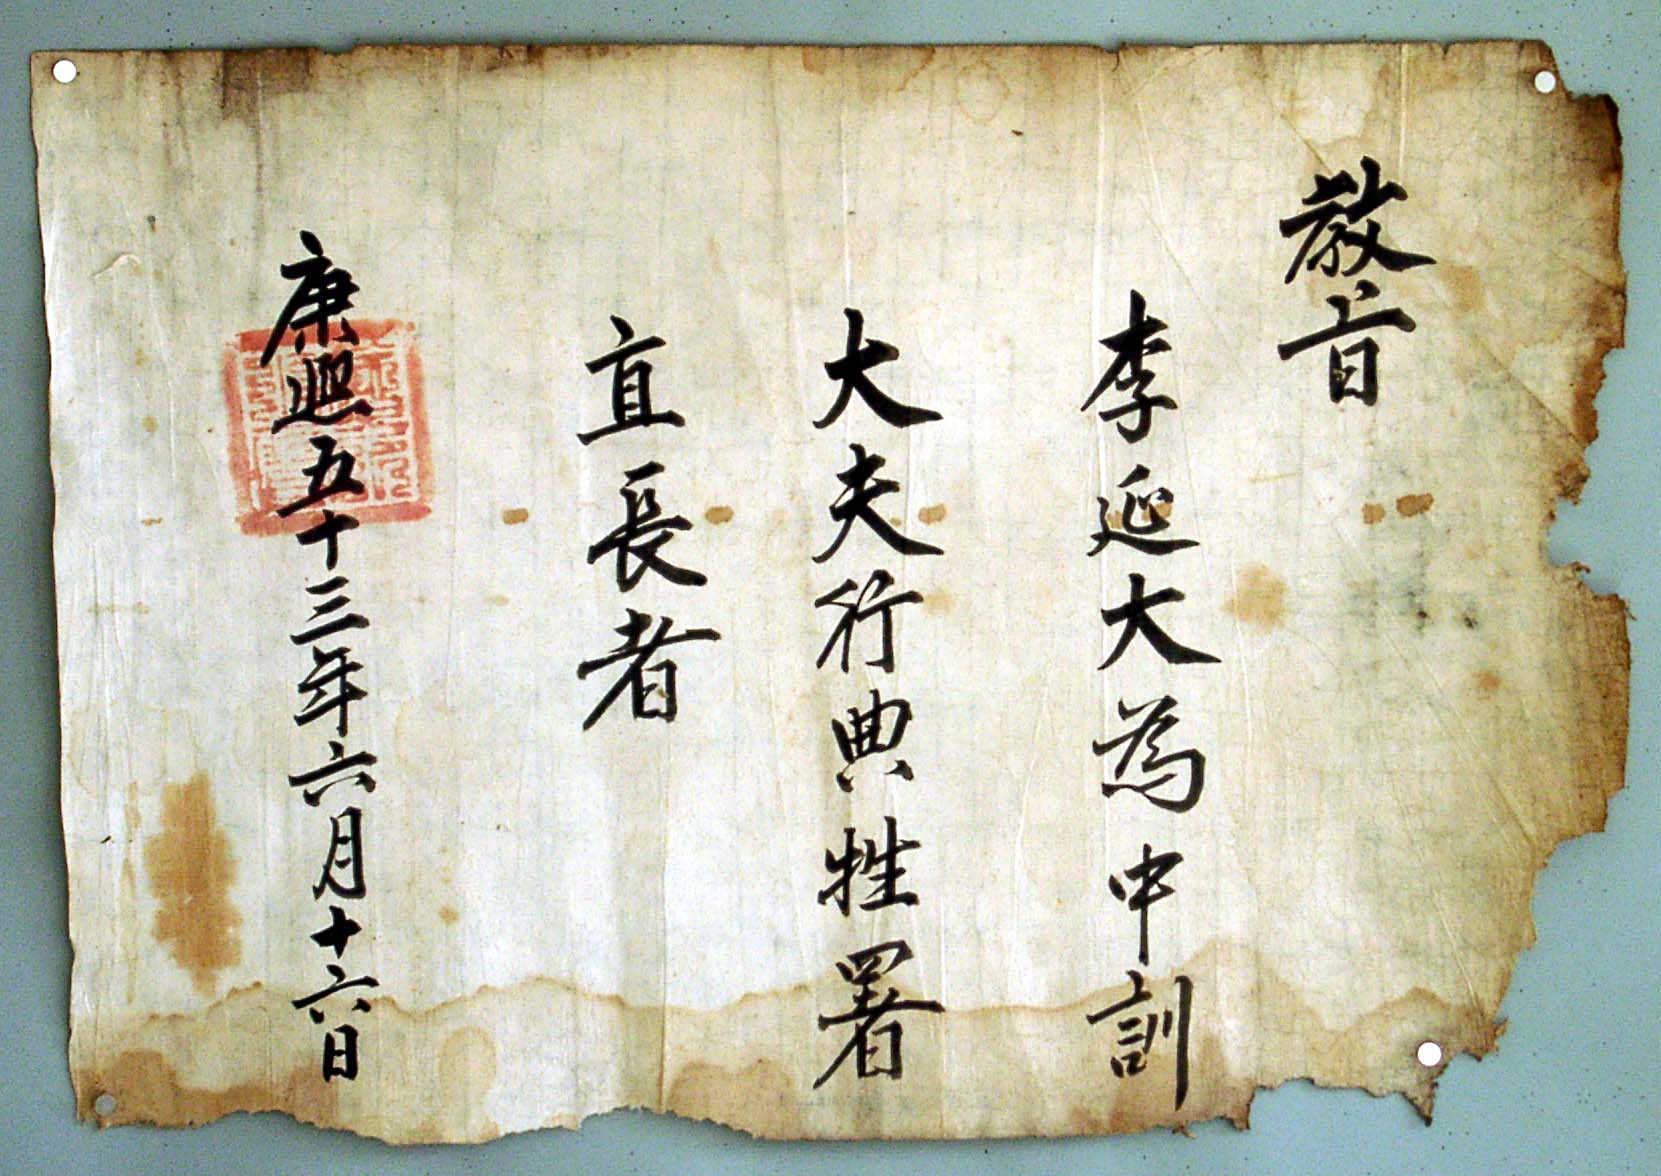 教旨
李延大為中訓
大夫行典牲署
直長者
康熙五十三年六月十六日